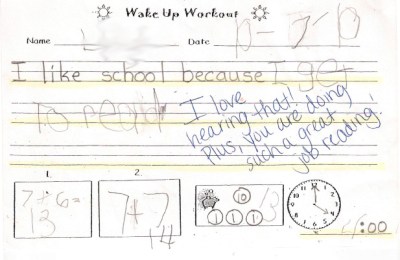 Wake Up Workout
Name Date
I like school because I get
to read
I love
hearing that!
Plus, you are doing
such a great
job reading!
1. 2.
7+6=
13
7+7
14
10 13
1 1 1
:00